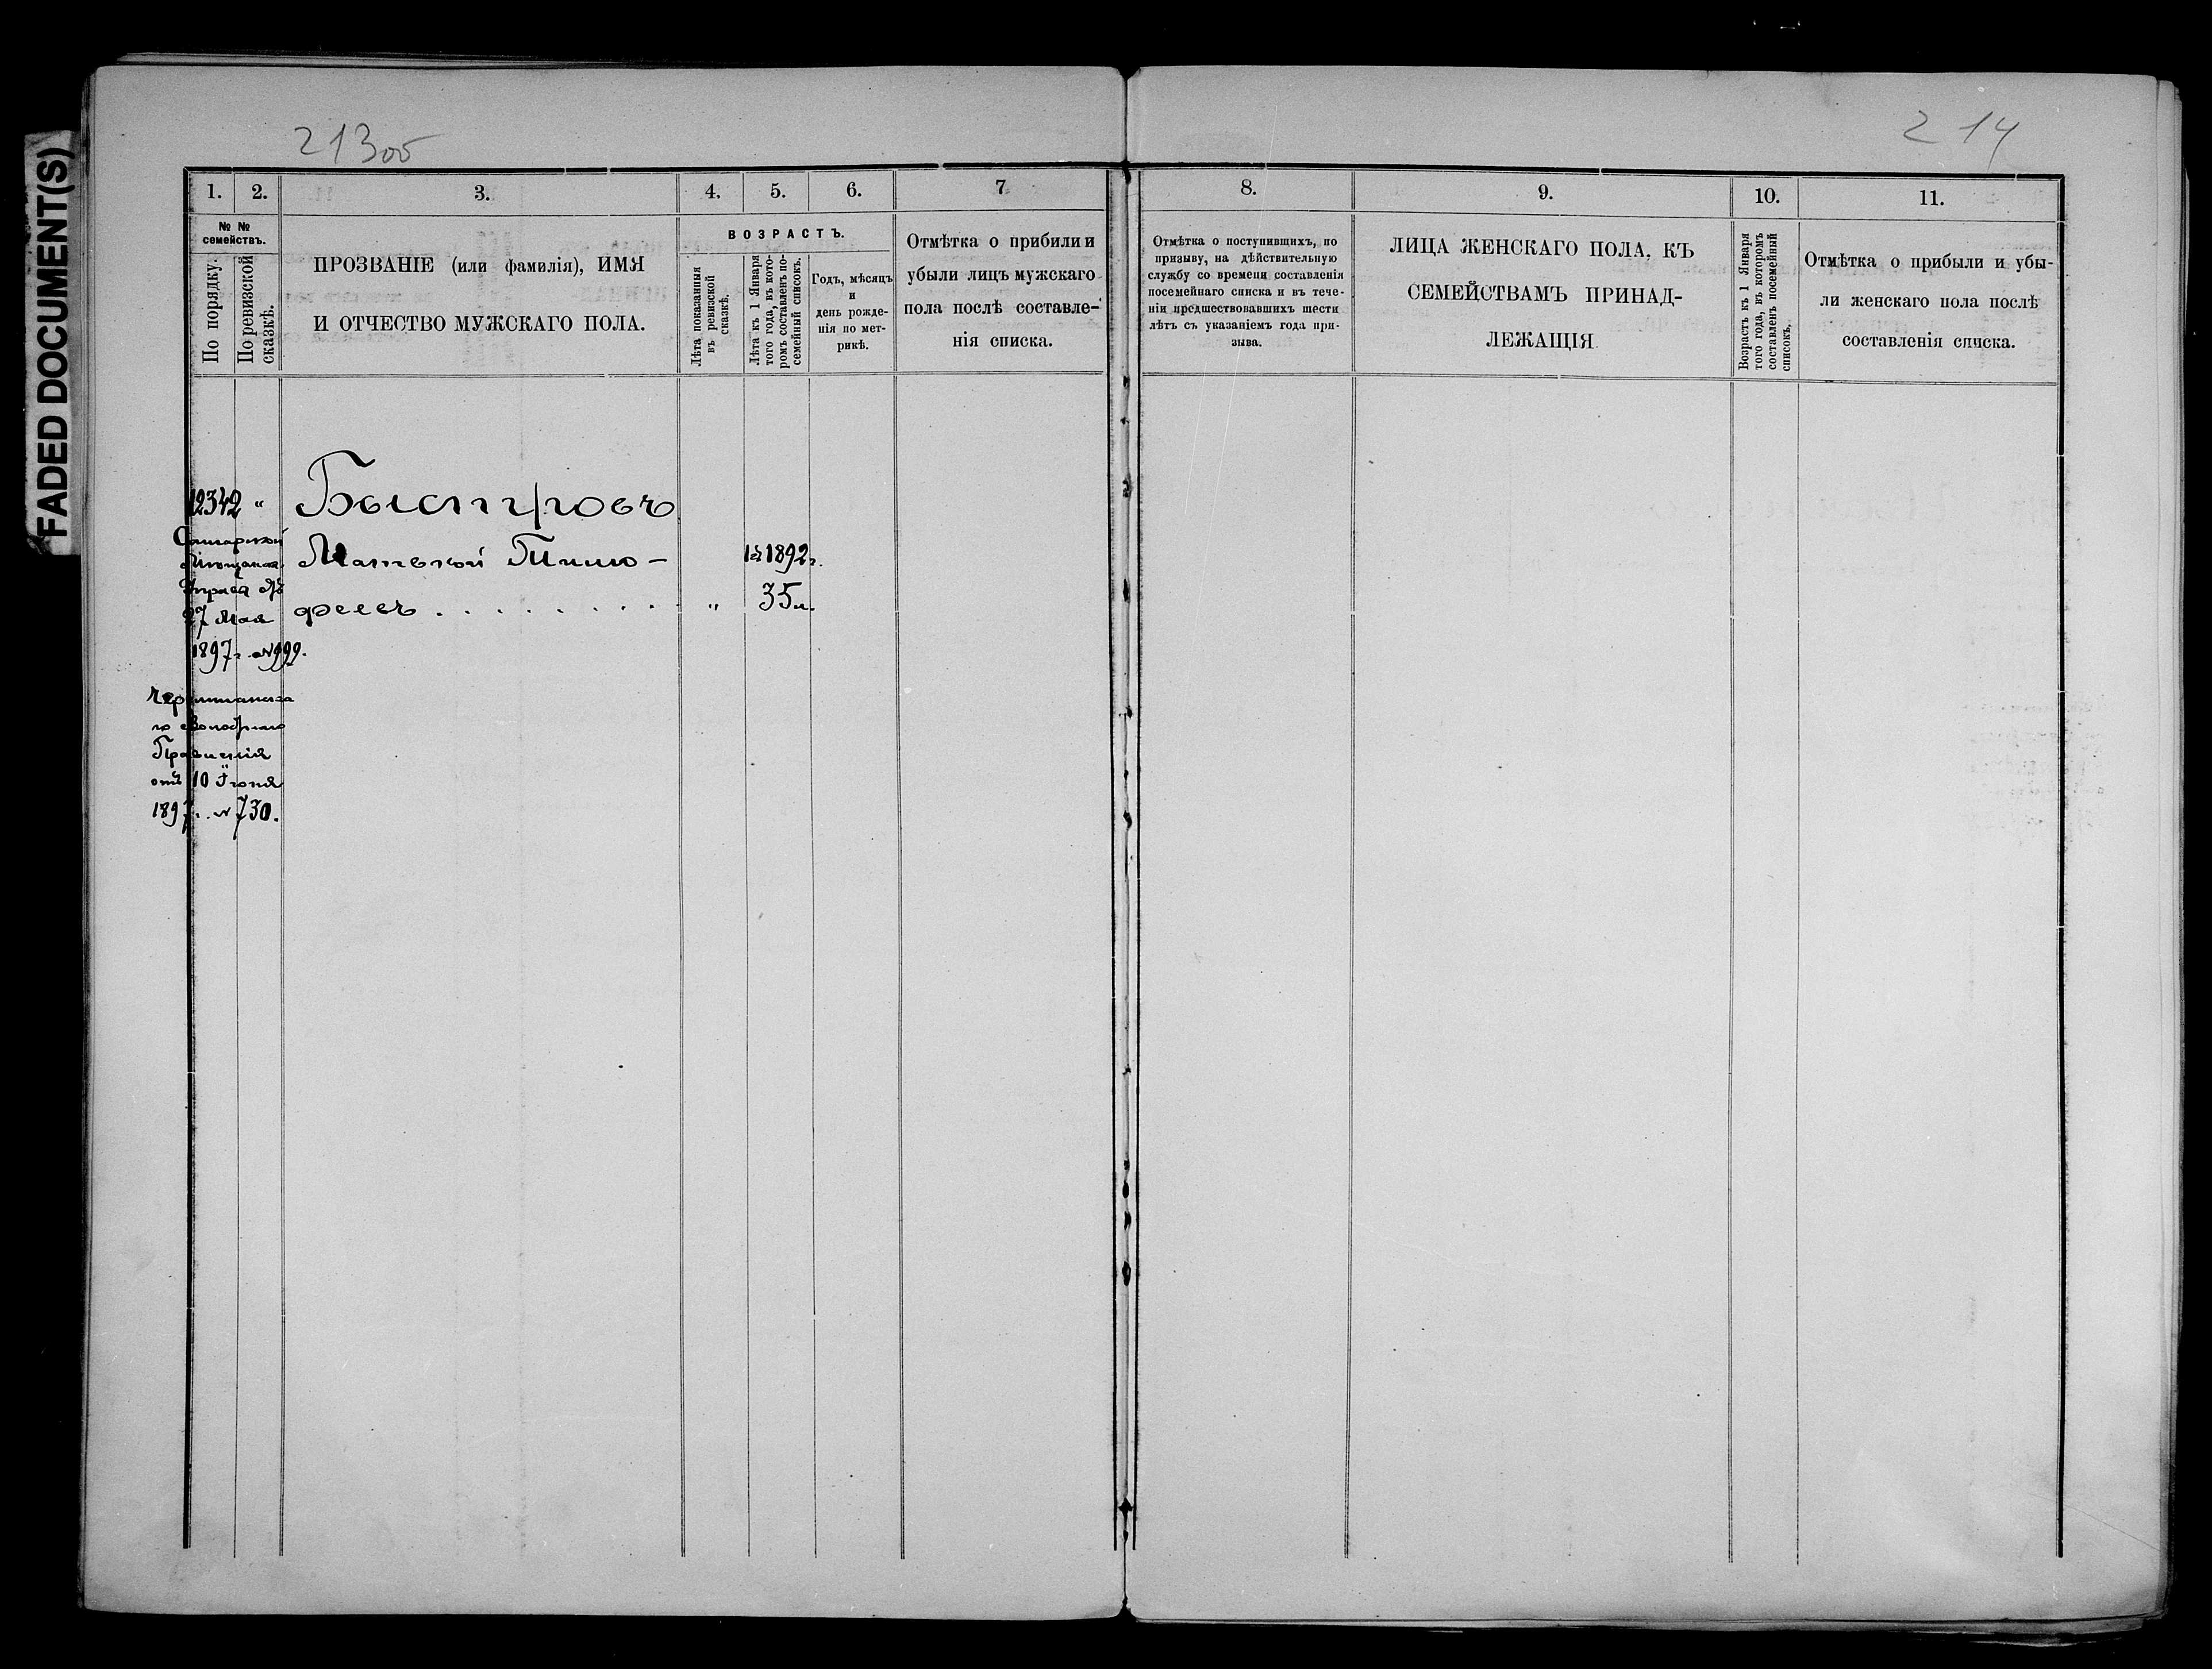 FADED DOCUMENT(S)
213об
214
1.
2.
3.
4.
5.
6.
7
8.
9.
10.
11.
№ №
семействъ.
По порядку.
По ревизской
сказкѣ.
ПРОЗВАНІЕ (или фамилія), ИМЯ
И ОТЧЕСТВО МУЖСКАГО ПОЛА.
ВОЗРАСТЪ.
Лѣта показанныя
въ ревизской
сказкѣ.
Лѣта къ 1 Января
того года, въ кото-
ромъ составленъ по-
семейный списокъ.
Годъ, мѣсяцъ
и
день рожде-
нія по мет-
рикѣ.
Отмѣтка о прибили и
убыли лицъ мужскаго
пола послѣ составле-
нія списка.
Отмѣтка о поступившихъ, по
призыву, на дѣйствительную
службу со времени составленія
посемейнаго списка и въ тече-
ніи предшествовавшихъ шести
лѣтъ съ указаніемъ года при-
зыва.
ЛИЦА ЖЕНСКАГО ПОЛА, КЪ
СЕМЕЙСТВАМЪ ПРИНАД-
ЛЕЖАЩІЯ
Возрастъ къ 1 Января
того года, въ которомъ
составленъ посемейный
списокъ.
Отмѣтка о прибыли и убы-
ли женскаго пола послѣ
составленія списка.
12342 " Быстровъ
Самарской
Мѣщанск.
Управы отъ
27 Мая
1897 г. № 999.
Матвѣй Тимо-
феевъ . . . . . . . . . "
1я 1892 г.
35 л.
Правленія
отъ 10 Іюня
1897 г. № 730.